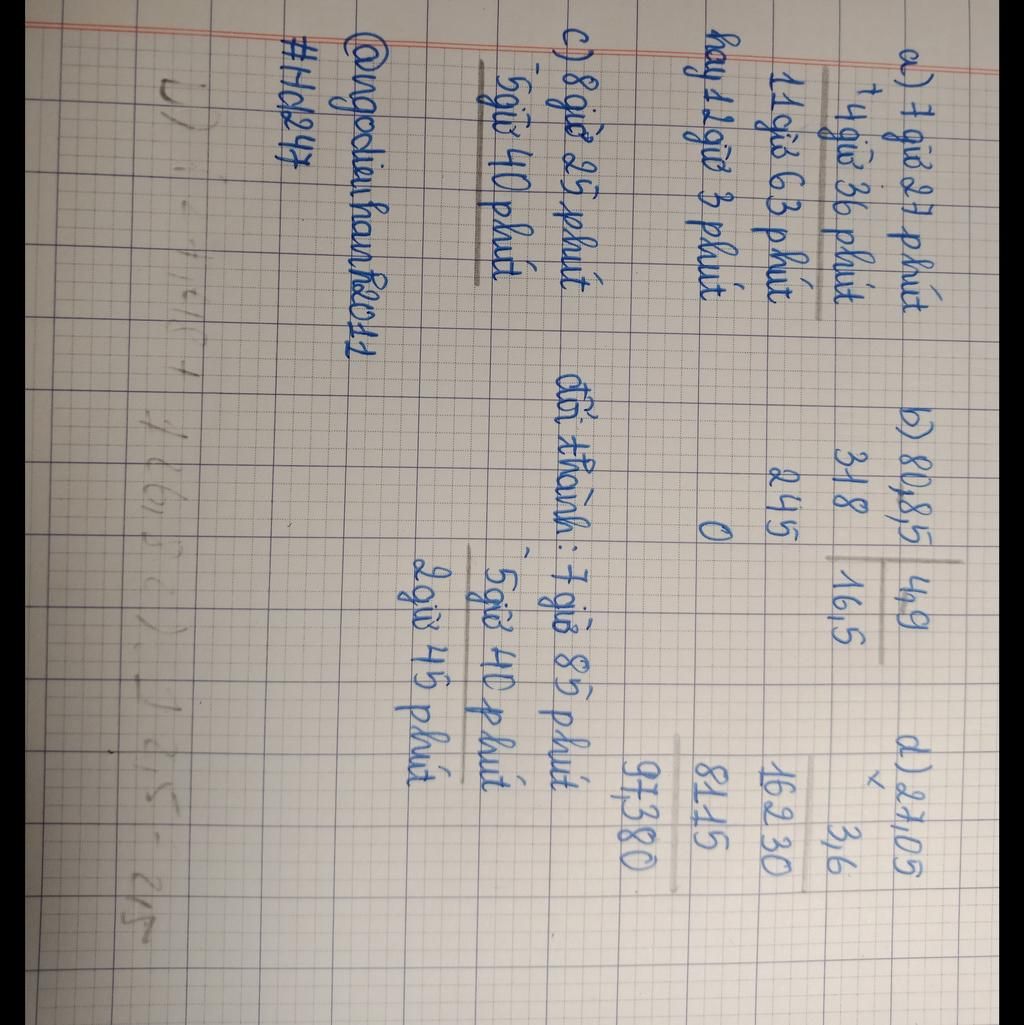 a) 7 giờ 27 phút
+ 4 giờ 36 phút
11 giờ 63 phút
hay 12 giờ 3 phút
b) 80,8,5 4,9
318 16,5
245
0
d) 27,05
x
3,6
16230
8115
97,380
c) 8 giờ 25 phút
- 5 giờ 40 phút
đổi thành: 7 giờ 85 phút
- 5 giờ 40 phút
2 giờ 45 phút
@ngodieuhanh2011
#Hd247